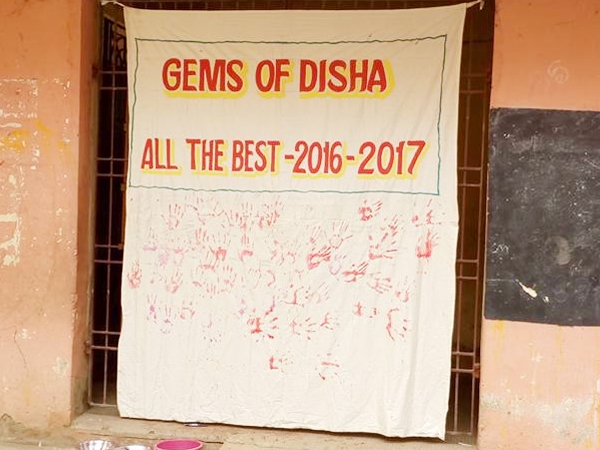 GEMS OF DISHA
ALL THE BEST-2016-2017